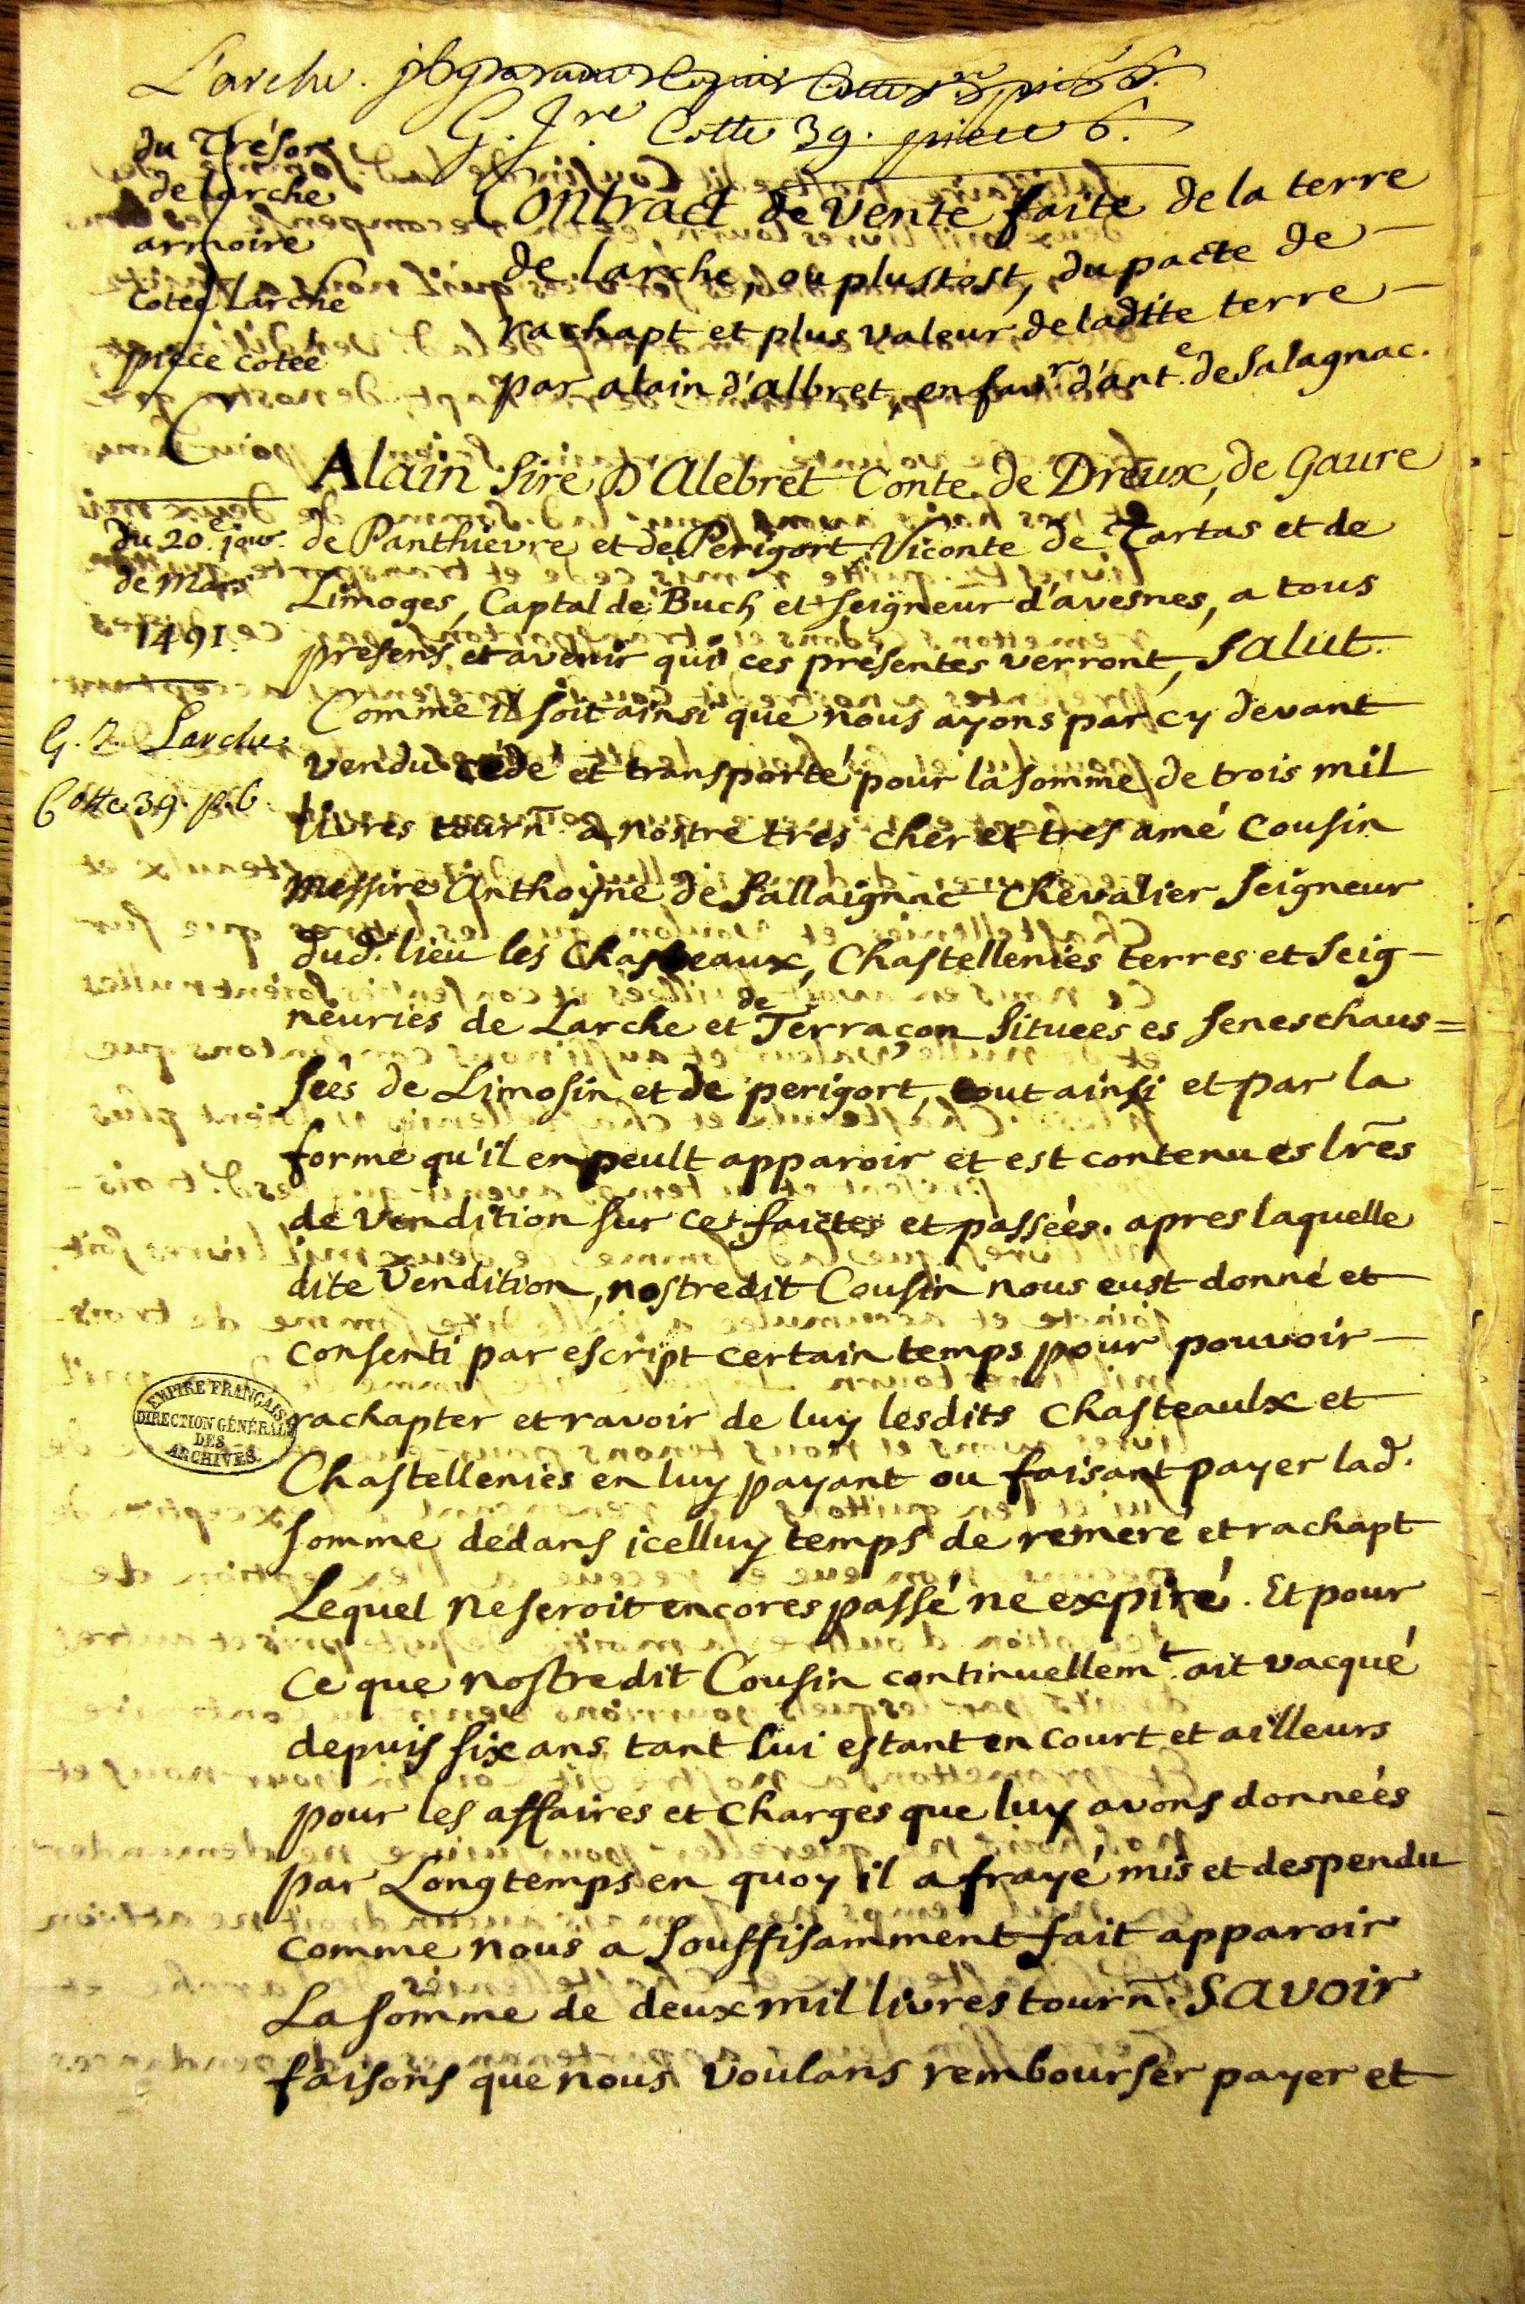 Larche.
G. Jre. Cotte 39. piece 6.
du Trésor
de larche
armoire
cotée larche
piece cotée
Contract de vente faite de la terre
de larche, ou plustost, du pacte de
rachapt et plus valeur de ladite terre
par alain d'albret, en favr. d'ante. de Salagnac.
du 20e. jour
de Mars
1491.
G. 2. Larche
Cotte 39. p. 6
Alain Sire D'Alebret Conte de Dreux, de Gaure
de Panthievre et de Perigort, Viconte de Tartas et de
Limoges, Captal de Buch et seigneur d'avesnes, a tous
presens et avenir qui ces presentes verront, Salut.
Comme il soit ainsi que nous ayons par cy devant
vendu cédé et transporté pour la somme de trois mil
livres tourn̄. a nostre tres cher et tres amé Cousin
Messire Anthoyne de Sallaignac Chevalier Seigneur
dud. lieu les Chasteaux, Chastellenies terres et Seig-
neuries de Larche et de Terracon Situeés es Seneschaus=
seés de Limosin et de perigort, tout ainsi et par la
forme qu'il en peult apparoir et est contenu es lr̄es
de Vendition sur ce faictes et passeés. apres laquelle
dite Vendition, nostredit Cousin nous eust donné et
consenti par escript certain temps pour pouvoir
rachapter et ravoir de luy lesdits Chasteaulx et
Chastellenies en luy payant ou faisant payer lad.
somme dedans icelluy temps de remeré et rachapt
Lequel ne seroit encores passé ne expiré. Et pour
ce que nostredit Cousin continuellemt. ait vacqué
depuis six ans tant lui estant en court et ailleurs
pour les affaires et charges que luy avons donneés
par Longtemps en quoy il a frayé mis et despendu
comme nous a souffisamment fait apparoir
La somme de deux mil livres tourn̄. Savoir
faisons que nous voulans rembourser payer et
EMPIRE FRANÇAIS
DIRECTION GÉNÉRALE
DES
ARCHIVES.